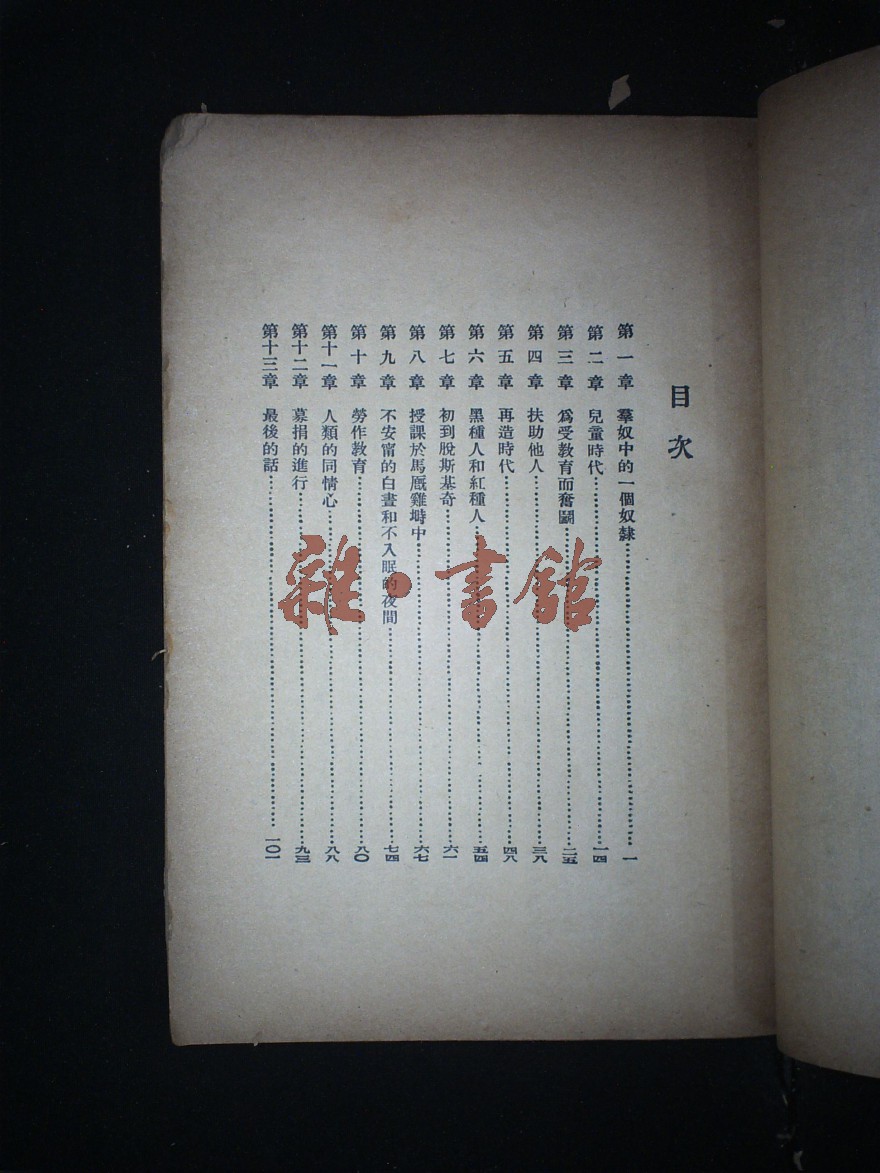 目次
第一章 羣奴中的一個奴隸……一
第二章 兒童時代……一四
第三章 爲受教育而奮鬭……二五
第四章 扶助他人……三八
第五章 再造時代……四八
第六章 黑種人和紅種人……五四
第七章 初到脫斯基奇……六一
第八章 授課於馬厩雞塒中……六七
第九章 不安甯的白晝和不入眠的夜間……七四
第十章 勞作教育……八〇
第十一章 人類的同情心……八八
第十二章 募捐的進行……九三
第十三章 最後的話……一〇一
雜·書館